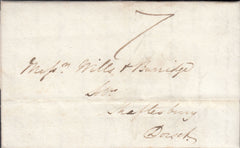 7
Messrs Wills & Burridge
Shaftesbury
Dorset